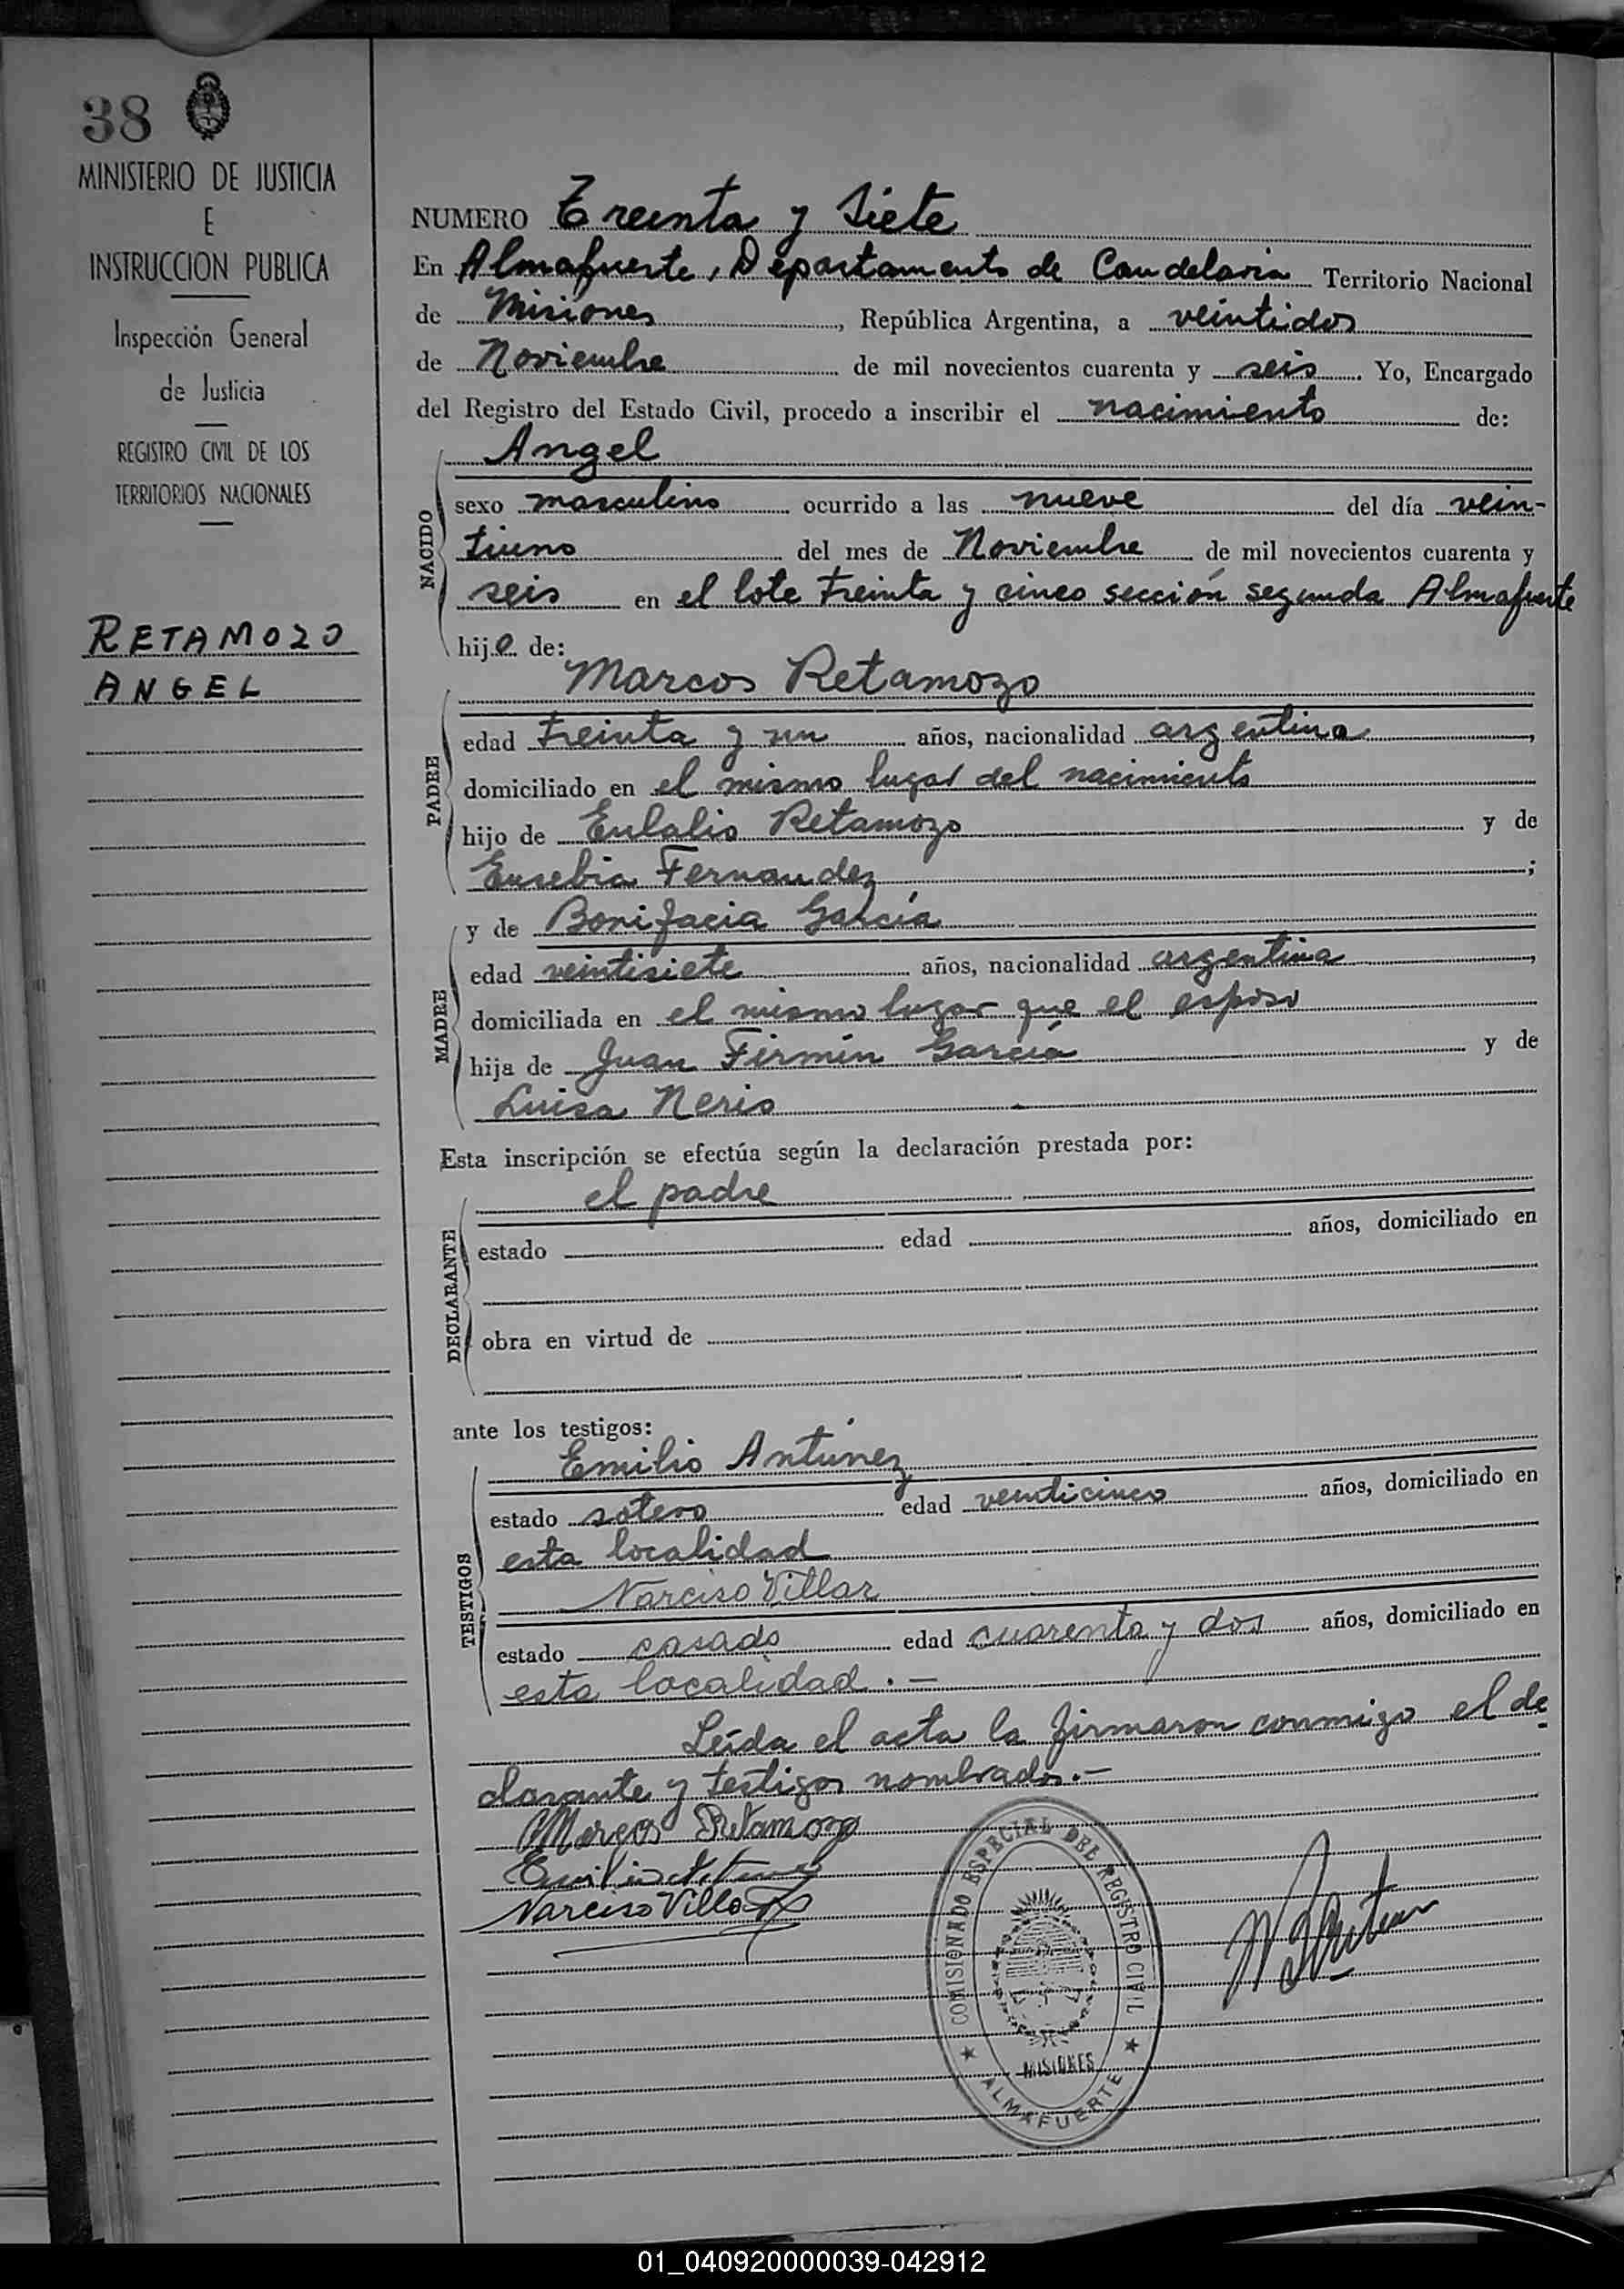 38
MINISTERIO DE JUSTICIA
E
INSTRUCCION PUBLICA
Inspección General
de Justicia
REGISTRO CIVIL DE LOS
TERRITORIOS NACIONALES
RETAMOZO
ANGEL
NUMERO Treinta y Siete
En Almafuerte, Departamento de Candelaria Territorio Nacional
de Misiones, República Argentina, a veintidos
de Noviembre de mil novecientos cuarenta y seis. Yo, Encargado
del Registro del Estado Civil, procedo a inscribir el nacimiento de:
Angel
NACIDO
sexo masculino ocurrido a las nueve del día vein-
tiuno del mes de Noviembre de mil novecientos cuarenta y
seis en el lote treinta y cinco sección segunda Almafuerte
hijo de:
Marcos Retamozo
PADRE
edad treinta y un años, nacionalidad argentina,
domiciliado en el mismo lugar del nacimiento
hijo de Eulalio Retamozo y de
Eusebia Fernandez;
y de Bonifacia García
MADRE
edad veintisiete años, nacionalidad argentina,
domiciliada en el mismo lugar que el esposo
hija de Juan Firmín García y de
Luisa Neris
Esta inscripción se efectúa según la declaración prestada por:
el padre
DECLARANTE
estado edad años, domiciliado en
obra en virtud de
ante los testigos:
Emilio Antúnez
TESTIGOS
estado sotero edad venticinco años, domiciliado en
esta localidad
Narciso Villar
estado casado edad cuarenta y dos años, domiciliado en
esta localidad.-
Leída el acta la firmaron conmigo el de
clarante y testigos nombrados.-
Marcos Retamozo
Emilio Antunez
Narciso Villar
COMISIONADO ESPECIAL DEL REGISTRO CIVIL
MISIONES
ALMAFUERTE
01_040920000039-042912